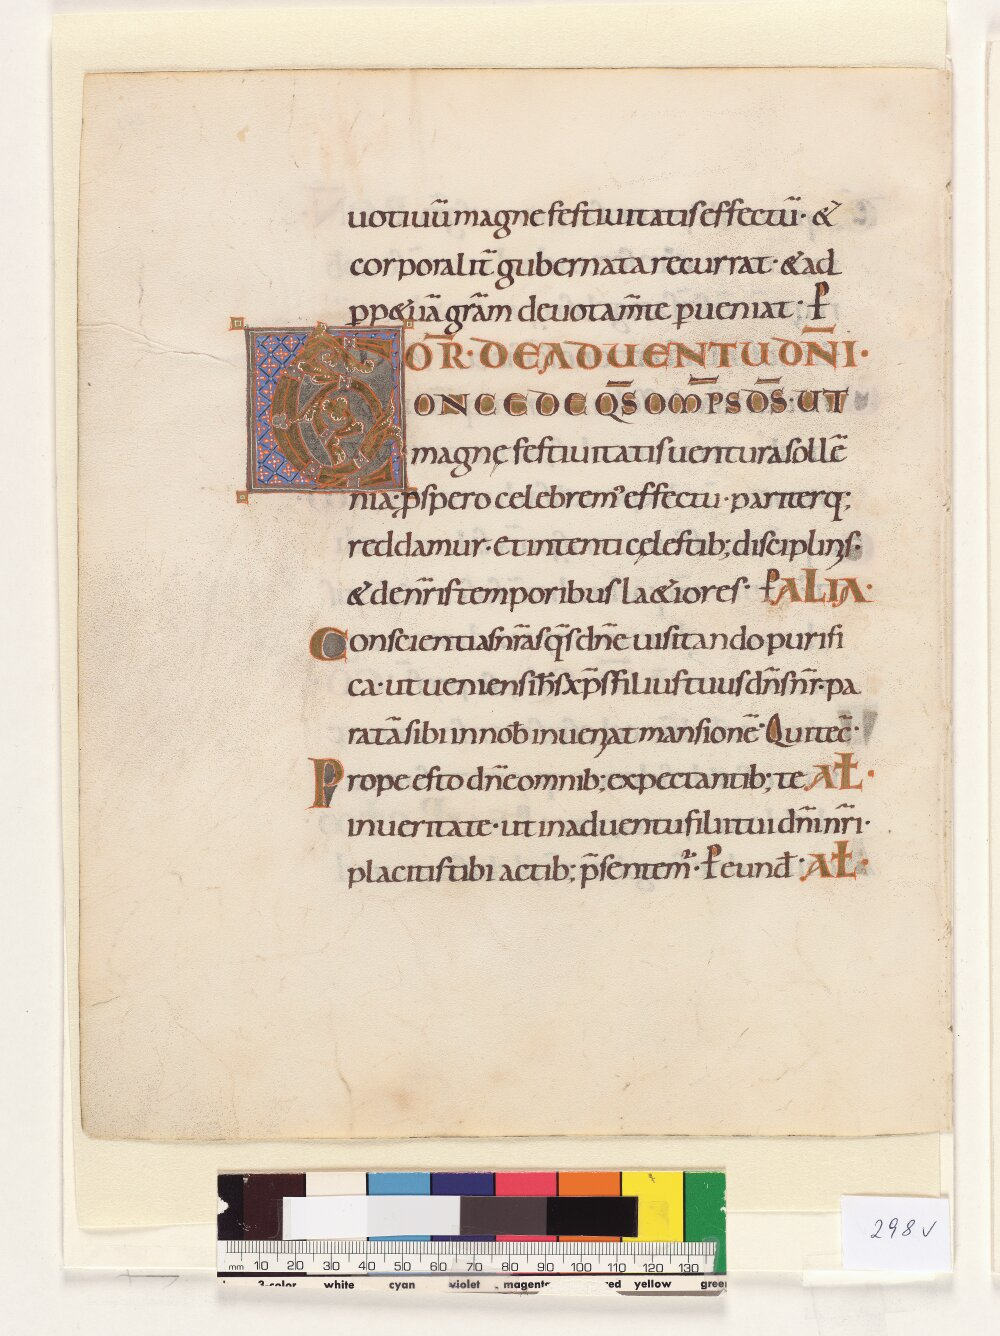 uotiuū magne festiuitatis effectū· &
corporalit̄ gubernata recurrat· & ad
ꝑpȩuā grām deuota m̄te ꝑueniat; ꝑ
OR̄· DE ADUENTU DN̄I·
CONCEDE QS̄ OMP̄S DS̄· UT
magnę festiuitatis uentura sollē
nia; ꝓspero celebrem᾽ effectu· pariterq;
reddamur· et intenti cęlestib; disciplinis·
& de nr̄is temporibus la&iores· ꝑ ALIA·
Conscientias nrās qs̄ dn̄e uisitando purifi
ca· ut ueniens ih̄s xp̄s filius tuus dn̄s nr̄· pa
ratā sibi in nob̄ inueniat mansionē· Qui tec̄·
Prope esto dn̄e omnib; expectantib; te AŁ·
in ueritate· ut in aduentu filii tui dn̄i nr̄i·
placitis tibi actib; p̄sentem᾽· ꝑ eund̄ AŁ·
298v
mm 10 20 30 40 50 60 70 80 90 100 110 120 130
3-color white cyan violet magenta red yellow green